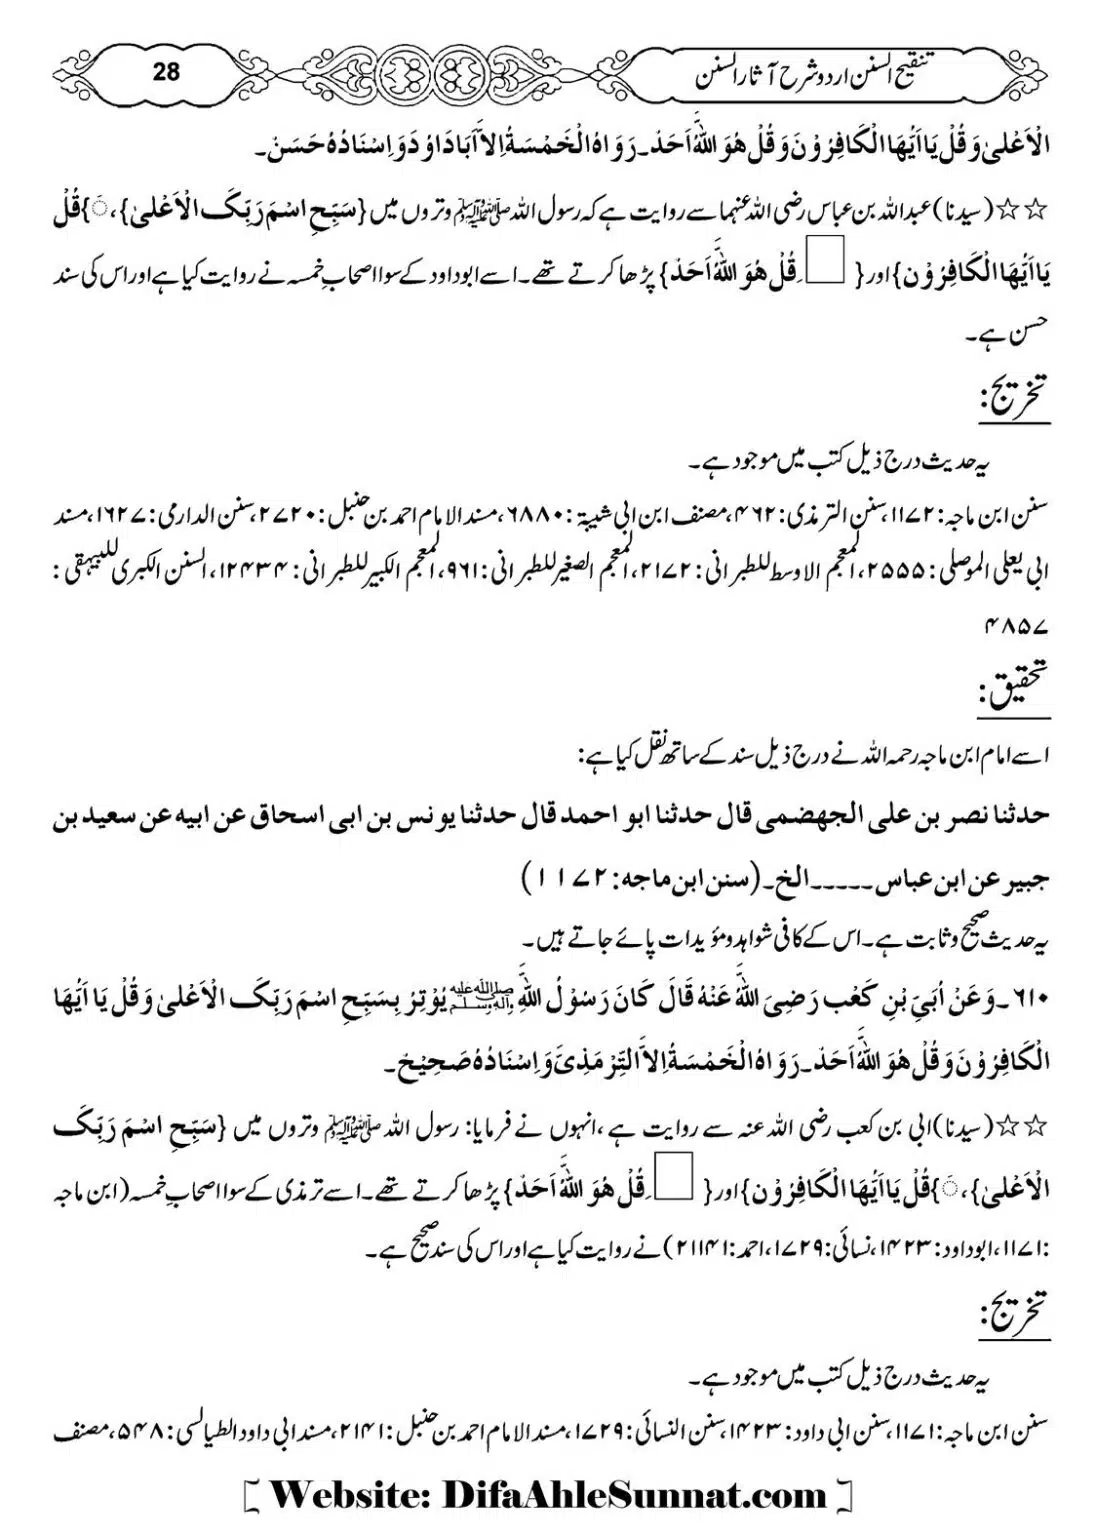 28
تنقیح السنن اردو شرح آثار السنن
الْاَعْلیٰ وَ قُلْ یَا اَیُّھَا الْکَافِرُوْنَ وَ قُلْ ھُوَ اللّٰہُ اَحَدْ۔ رَوَاہُ الْخَمْسَۃُ اِلاَّ اَبَادَاوُدَ وَ اِسْنَادُہُ حَسَنْ۔
☆☆(سیدنا) عبداللہ بن عباس رضی اللہ عنہما سے روایت ہے کہ رسول اللہ ﷺ وتروں میں {سَبِّحِ اسْمَ رَبِّکَ الْاَعْلیٰ}، َ}قُلْ
یَا اَیُّھَا الْکَافِرُوْن} اور { □ِ قُلْ ھُوَ اللّٰہُ اَحَدْ} پڑھا کرتے تھے۔ اسے ابوداود کے سوا اصحابِ خمسہ نے روایت کیا ہے اور اس کی سند
حسن ہے۔
تخریج:
یہ حدیث درج ذیل کتب میں موجود ہے۔
سنن ابن ماجہ: ۱۱۷۲، سنن الترمذی: ۴۶۲، مصنف ابن ابی شیبۃ: ۶۸۸۰، مسند الامام احمد بن حنبل: ۲۷۲۰، سنن الدارمی: ۱۶۲۷، مسند
ابی یعلی الموصلی: ۲۵۵۵، المعجم الاوسط للطبرانی: ۲۱۷۲، المعجم الصغیر للطبرانی: ۹۶۱، المعجم الکبیر للطبرانی: ۱۲۴۳۴، السنن الکبری للبیہقی:
۴۸۵۷
تحقیق:
اسے امام ابن ماجہ رحمہ اللہ نے درج ذیل سند کے ساتھ نقل کیا ہے:
حدثنا نصر بن علی الجھضمی قال حدثنا ابو احمد قال حدثنا یونس بن ابی اسحاق عن ابیہ عن سعید بن
جبیر عن ابن عباس۔۔۔۔۔ الخ۔ (سنن ابن ماجہ: ۱۱۷۲)
یہ حدیث صحیح و ثابت ہے۔ اس کے کافی شواہد و مؤیدات پائے جاتے ہیں۔
۶۱۰۔ وَ عَنْ اُبَیِّ بْنِ کَعْبٍ رَضِیَ اللّٰہُ عَنْہُ قَالَ کَانَ رَسُوْلُ اللّٰہِ ﷺ یُوْتِرُ بِسَبِّحِ اسْمَ رَبِّکَ الْاَعْلیٰ وَ قُلْ یَا اَیُّھَا
الْکَافِرُوْنَ وَ قُلْ ھُوَ اللّٰہُ اَحَدْ۔ رَوَاہُ الْخَمْسَۃُ اِلاَّ التِّرْمَذِیَّ وَ اِسْنَادُہُ صَحِیْحْ۔
☆☆(سیدنا) ابی بن کعب رضی اللہ عنہ سے روایت ہے، انہوں نے فرمایا: رسول اللہ ﷺ وتروں میں {سَبِّحِ اسْمَ رَبِّکَ
الْاَعْلیٰ}، َ}قُلْ یَا اَیُّھَا الْکَافِرُوْن} اور { □ِ قُلْ ھُوَ اللّٰہُ اَحَدْ} پڑھا کرتے تھے۔ اسے ترمذی کے سوا اصحابِ خمسہ (ابن ماجہ
:۱۱۷۱، ابوداود: ۱۴۲۳، نسائی: ۱۷۲۹، احمد: ۲۱۱۴۱) نے روایت کیا ہے اور اس کی سند صحیح ہے۔
تخریج:
یہ حدیث درج ذیل کتب میں موجود ہے۔
سنن ابن ماجہ: ۱۱۷۱، سنن ابی داود: ۱۴۲۳، سنن النسائی: ۱۷۲۹، مسند الامام احمد بن حنبل: ۲۱۴۱، مسند ابی داود الطیالسی: ۵۴۸، مصنف
[ Website: DifaAhleSunnat.com ]